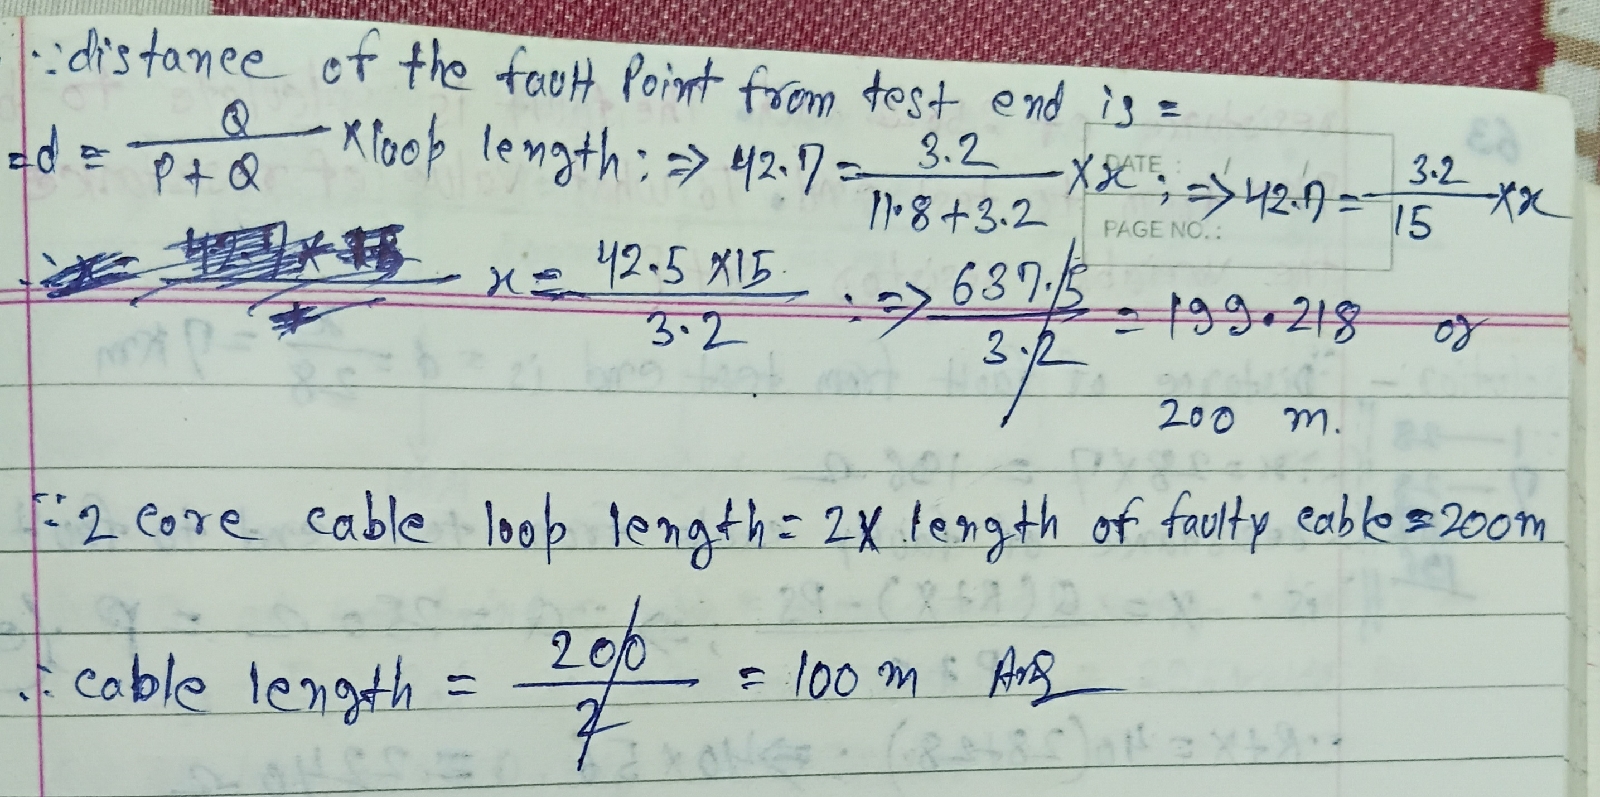 ∵ distance of the fault Point from test end is =
= d = Q / P + Q × loop length ; ⇒ 42.7 = 3.2 / 11.8 + 3.2 × x ; ⇒ 42.7 = 3.2 / 15 × x
DATE :
PAGE NO. :
x = 42.5 × 15 / 3.2 ; ⇒ 637.5 / 3.2 = 199.218 or
200 m.
∵ 2 core cable loop length = 2 × length of faulty cable = 200m
∴ cable length = 200 / 2 = 100 m Ans